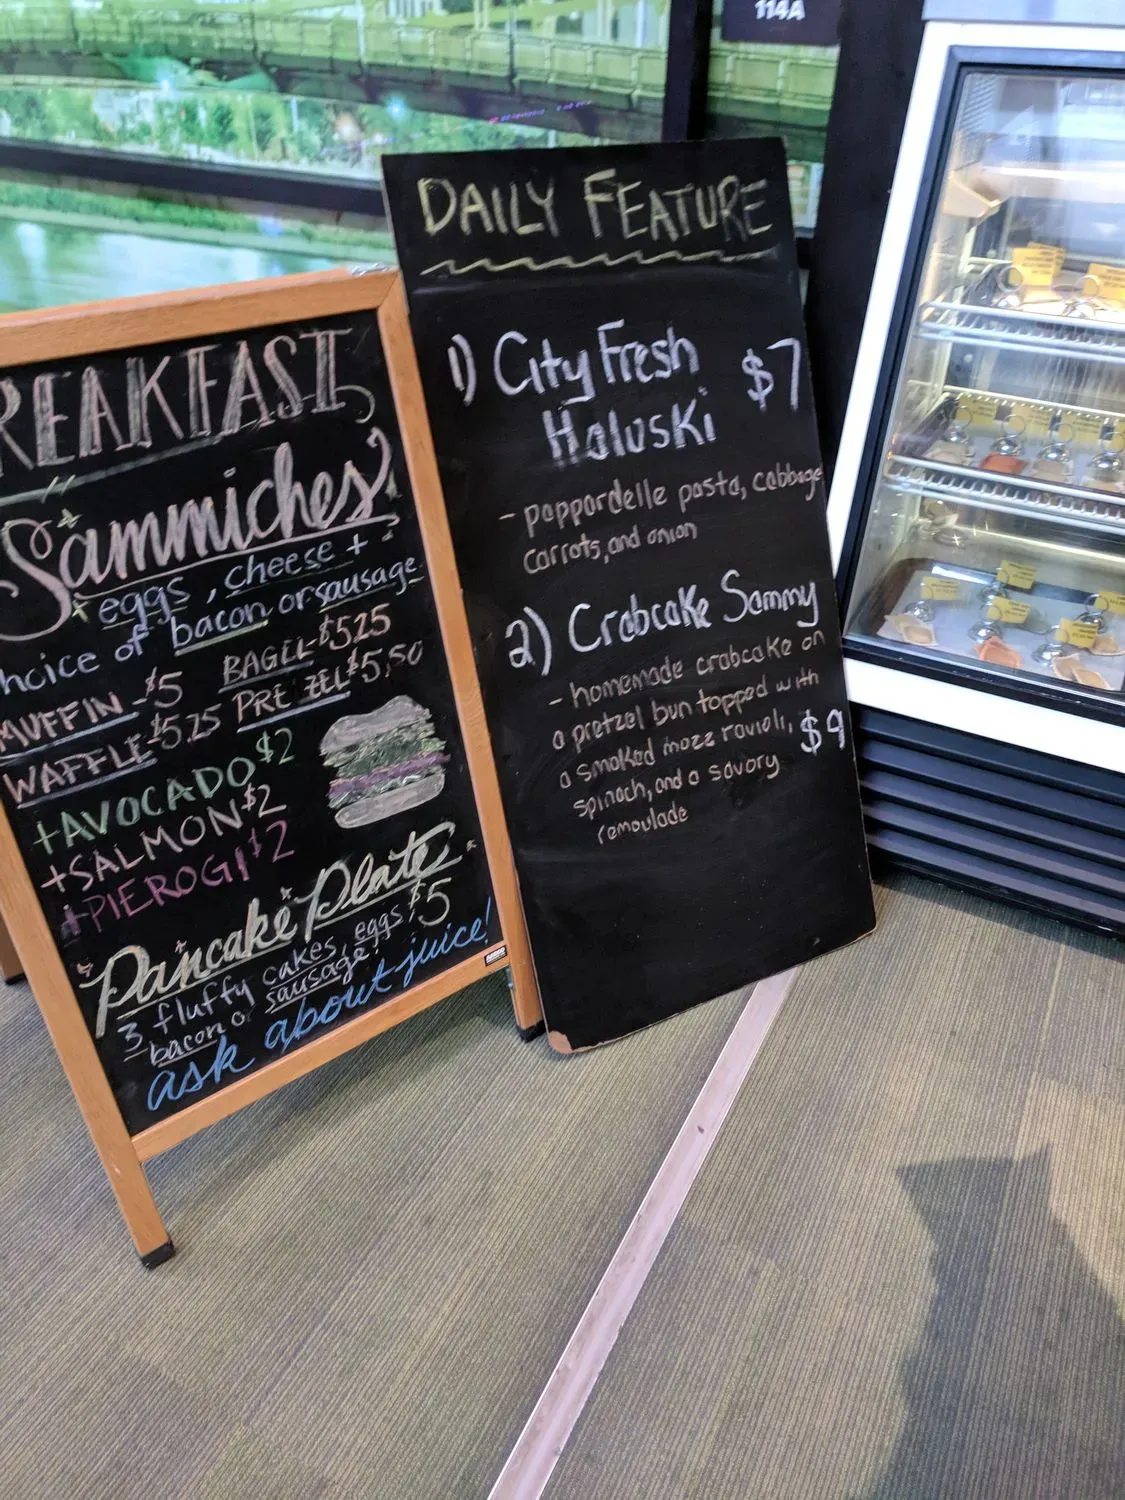 114A
DAILY FEATURE
1) City Fresh $7
Haluski
- pappardelle pasta, cabbage
carrots, and onion
2) Crabcake Sammy
- homemade crabcake on
a pretzel bun topped with
a smoked mozz ravioli, $9
spinach, and a savory
remoulade
REAKFAST
Sammiches
eggs, cheese +
hoice of bacon or sausage
MUFFIN-$5 BAGEL-$525
WAFFLE-$525 PRETZEL-$5.50
+AVOCADO $2
+SALMON $2
+PIEROGI $2
Pancake Plate
3 fluffy cakes, eggs $5
bacon or sausage!
ask about juice!